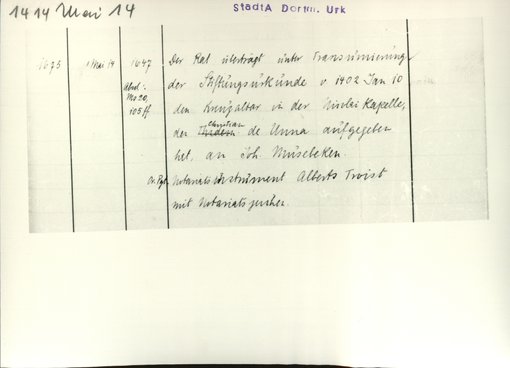 1414 Mai 14
StadtA Dortm. Urk
1675 Mai 14 1647
Der Rat überträgt unter Transsumierung
Abul.:
Ms 20,
105 ff
der Stiftungsurkunde v 1402 Jan 10
den Kreuzaltar in der Nicolai Kapelle,
Christian
den de Unna aufgegeben
hat, an Joh Müsebeken.
Or. Pgt. Notariatsinstrument Alberts Troist
mit Notariatszeichen.